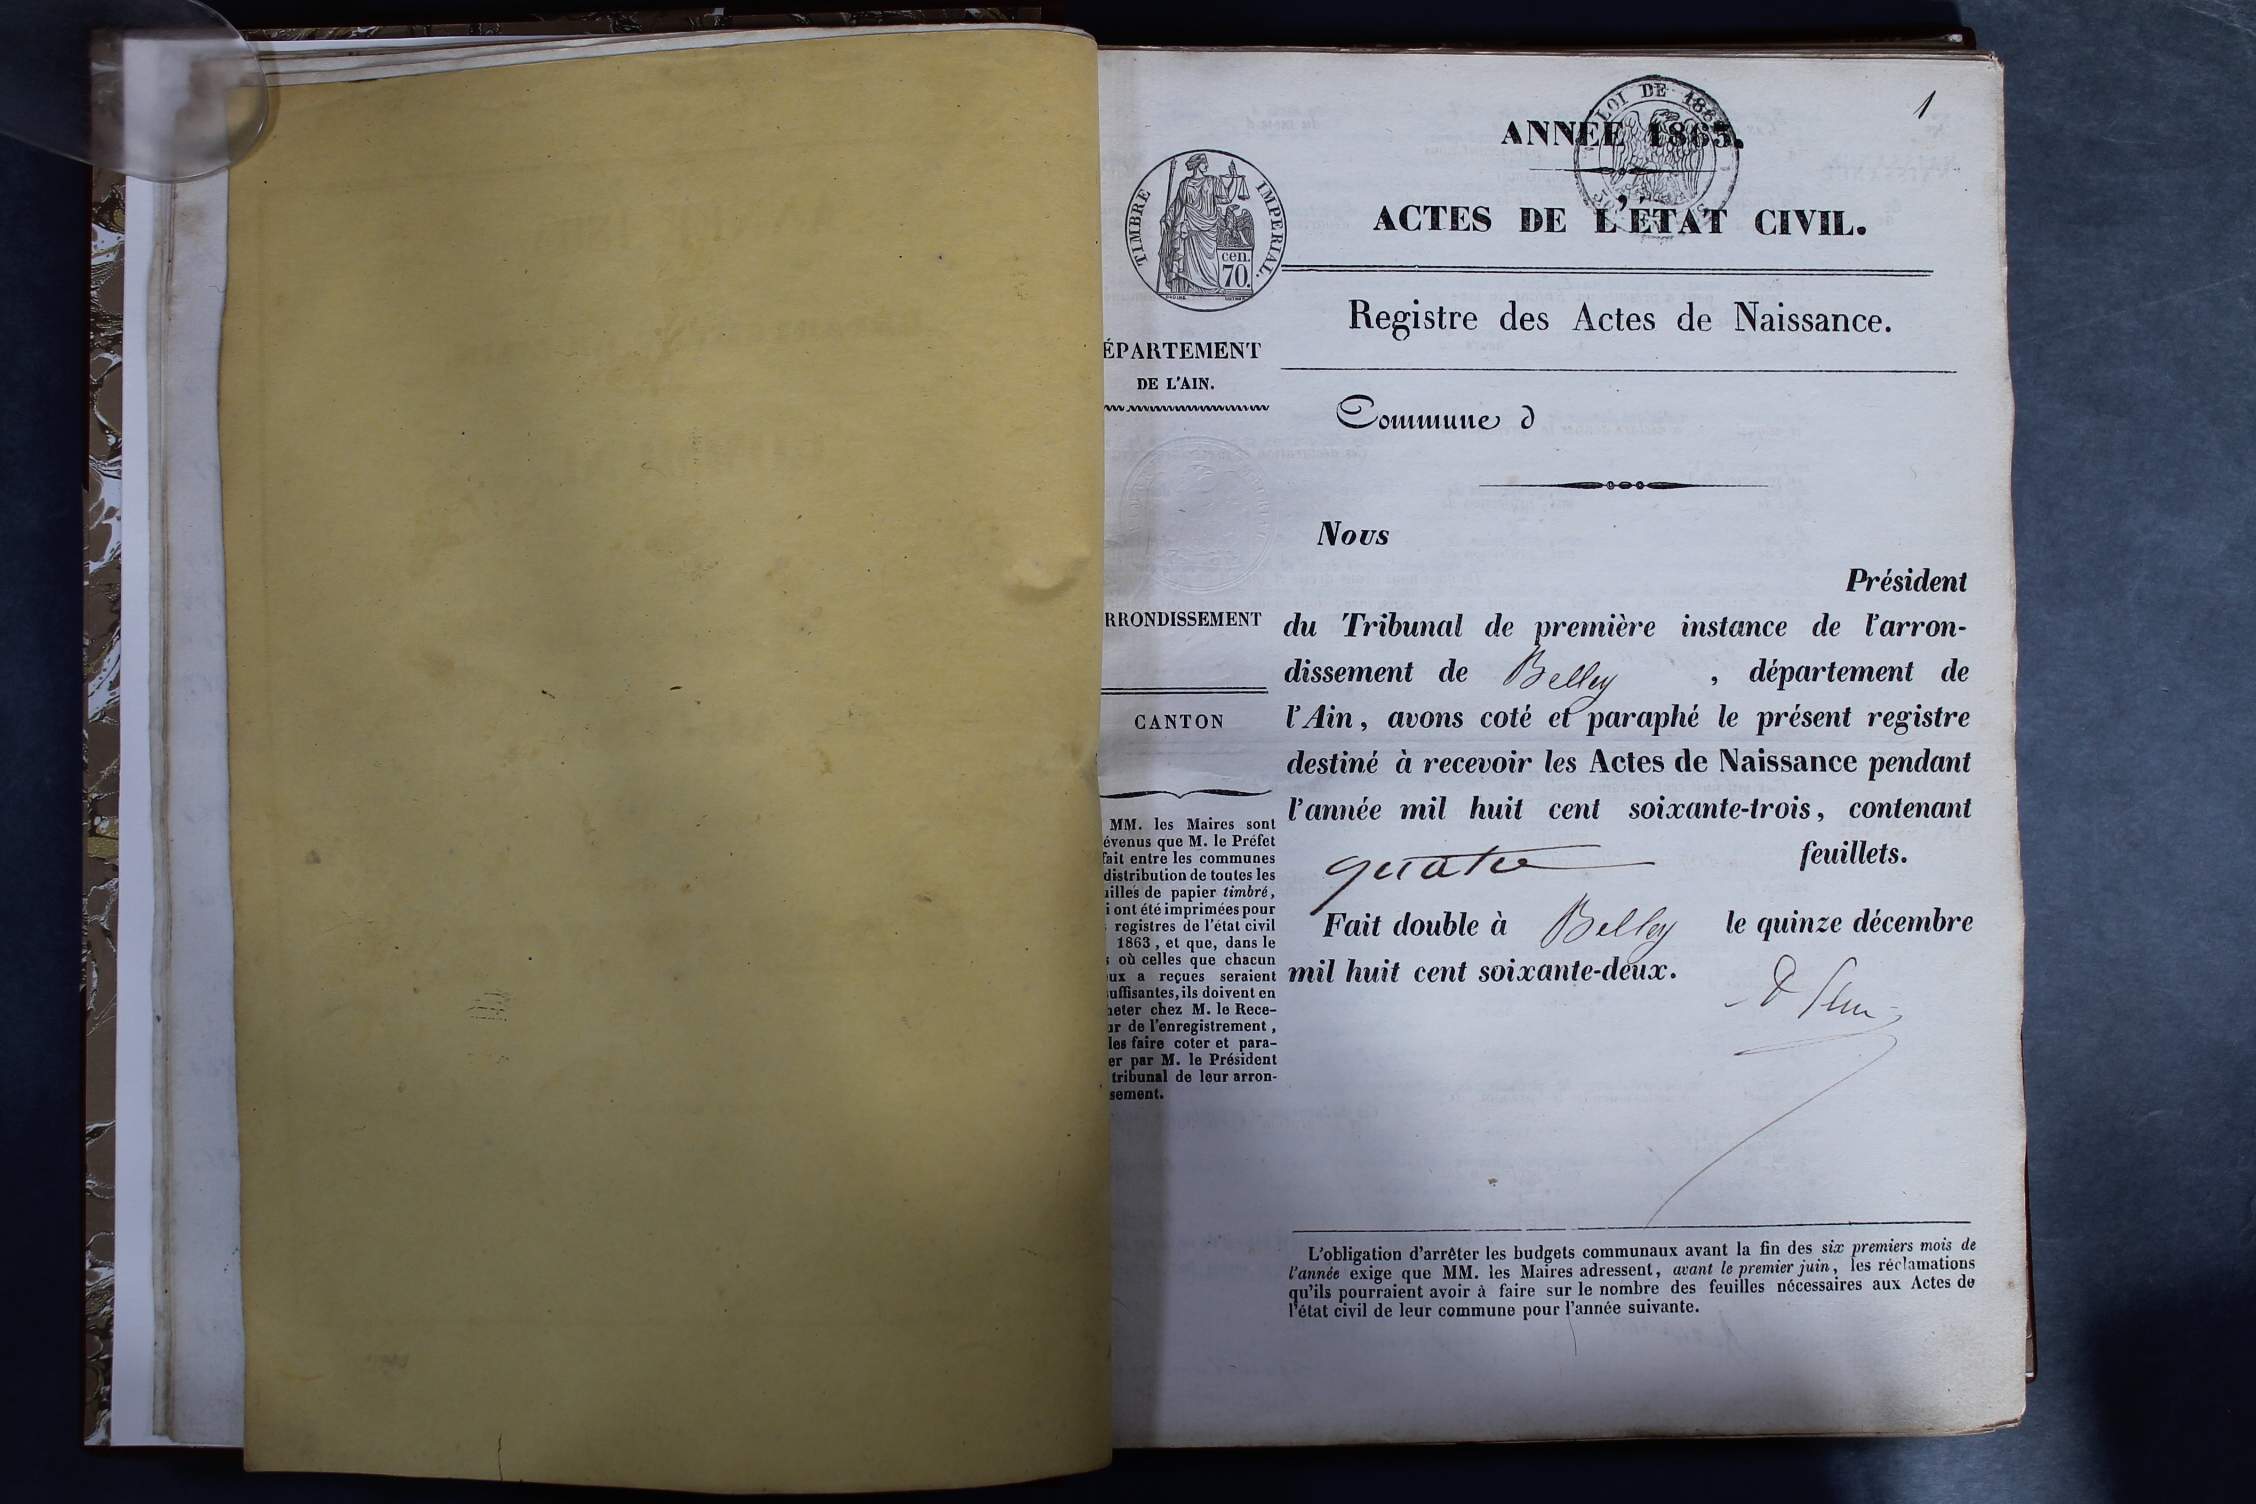 1
LOI DE 1862
ANNÉE 1863.
TIMBRE IMPERIAL.
cen.
70.
ACTES DE L'ÉTAT CIVIL.
Registre des Actes de Naissance.
ÉPARTEMENT
DE L'AIN.
Commune d
Nous
Président
RRONDISSEMENT
du Tribunal de première instance de l'arron-
dissement de Belley , département de
l'Ain, avons coté et paraphé le présent registre
destiné à recevoir les Actes de Naissance pendant
l'année mil huit cent soixante-trois, contenant
quatre feuillets.
Fait double à Belley le quinze décembre
mil huit cent soixante-deux.
CANTON
MM. les Maires sont
évenus que M. le Préfet
fait entre les communes
distribution de toutes les
uilles de papier timbré,
i ont été imprimées pour
registres de l'état civil
1863, et que, dans le
s où celles que chacun
ux a reçues seraient
uffisantes, ils doivent en
heter chez M. le Rece-
ur de l'enregistrement,
les faire coter et para-
er par M. le Président
tribunal de leur arron-
sement.
L'obligation d'arrêter les budgets communaux avant la fin des six premiers mois de
l'année exige que MM. les Maires adressent, avant le premier juin, les réclamations
qu'ils pourraient avoir à faire sur le nombre des feuilles nécessaires aux Actes de
l'état civil de leur commune pour l'année suivante.